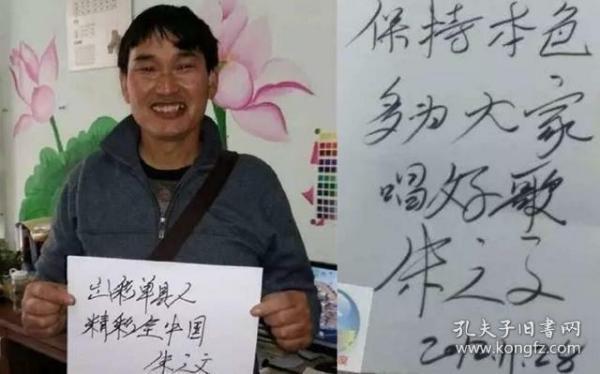 出彩单县人
精彩全中国
朱之文
保持本色
多为大家
唱好歌
朱之文
孔夫子旧书网
www.kongfz.com